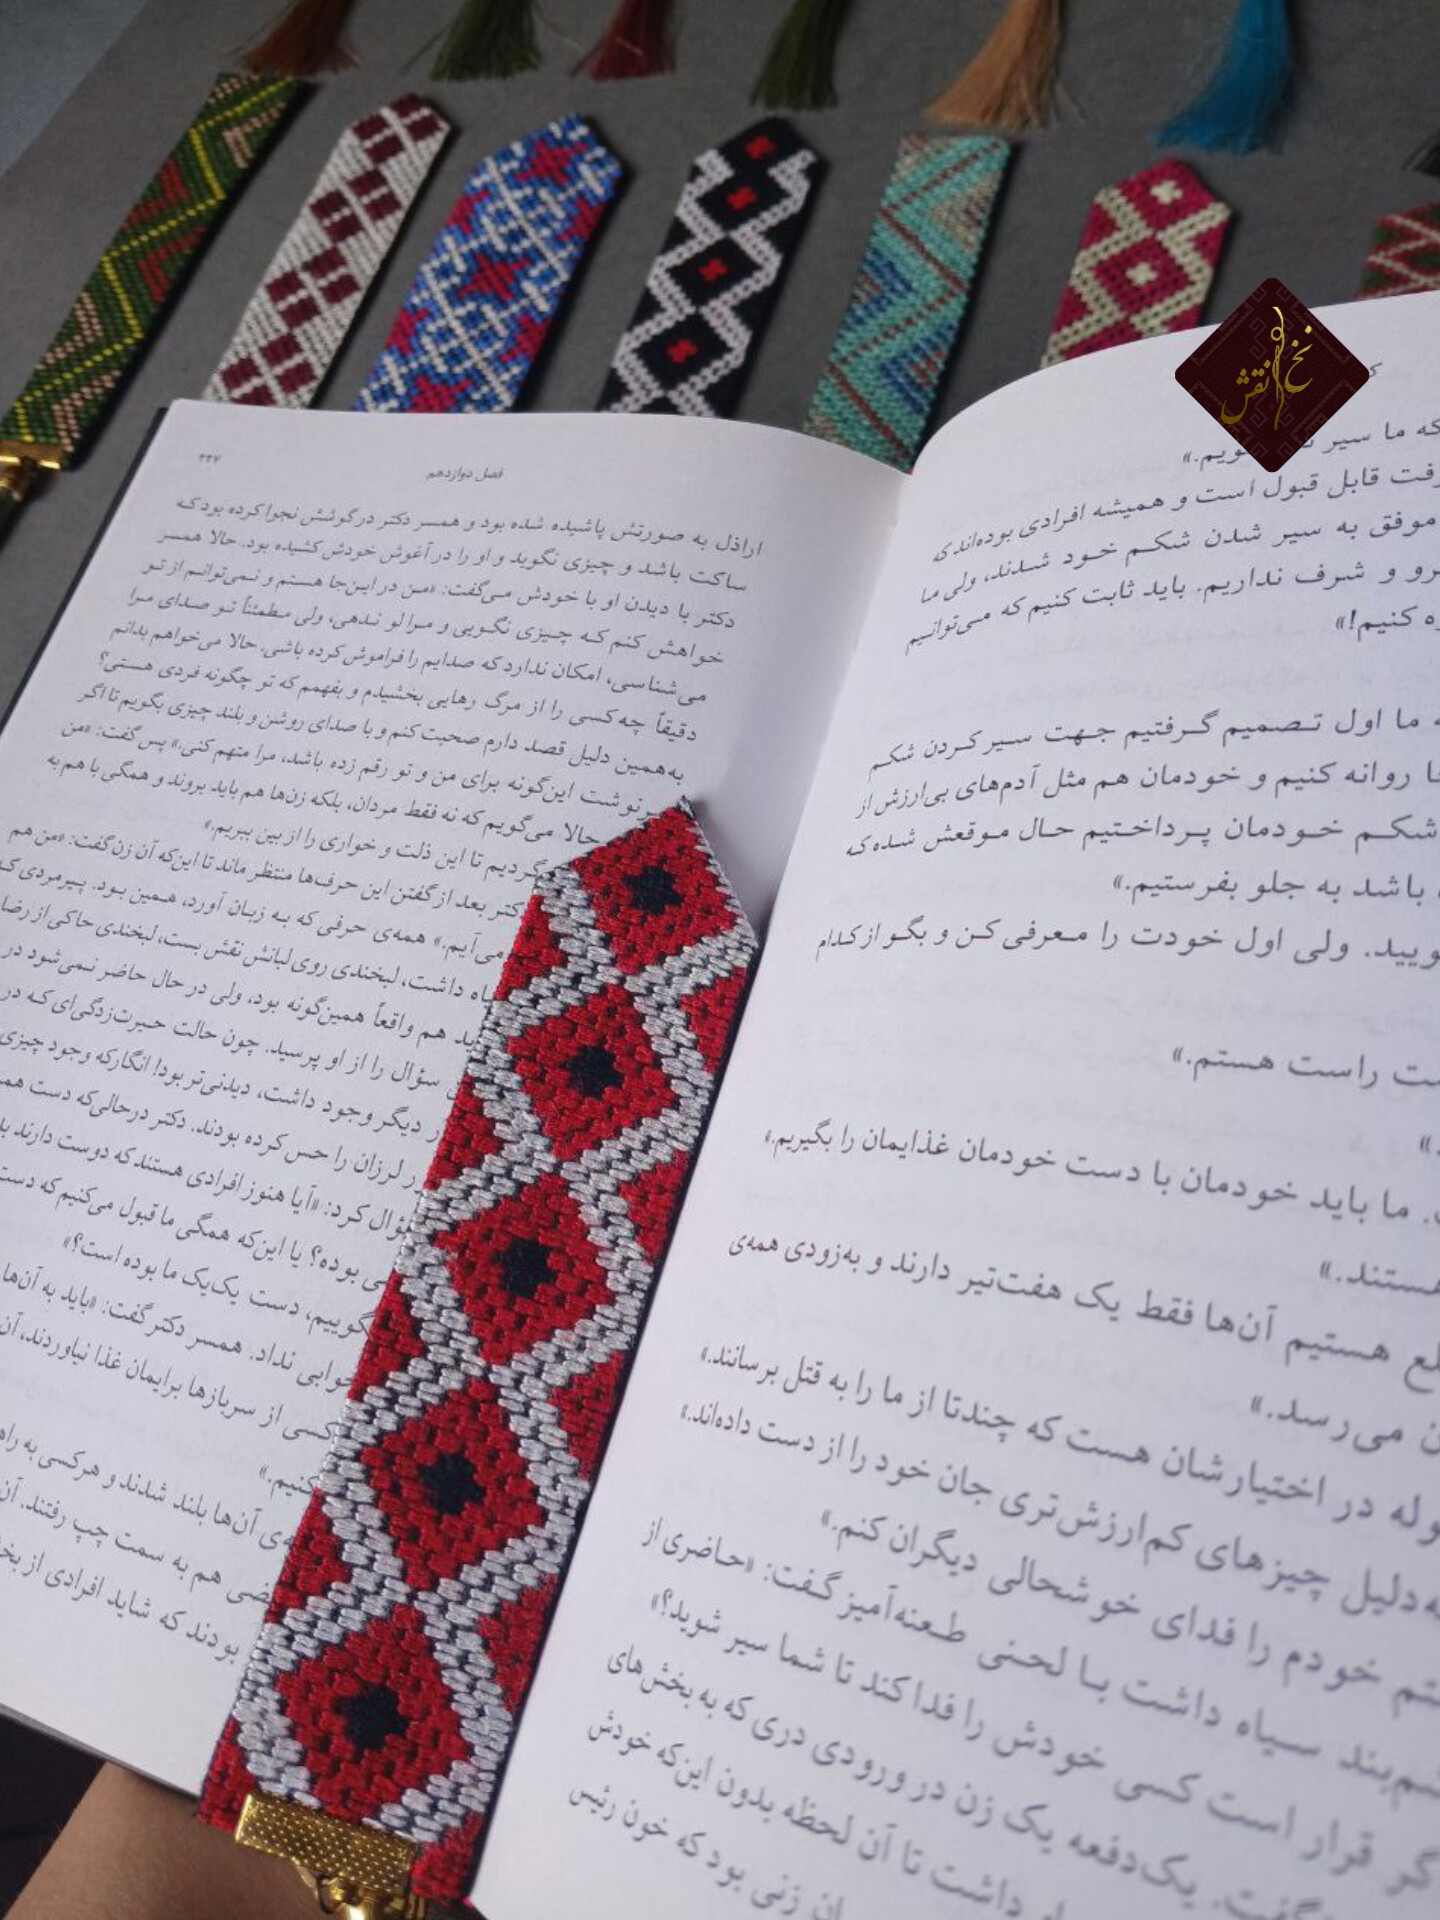 ۳۳۷
فصل دوازدهم
اراذل به صورتش پاشیده شده بود و همسر دکتر در گوشش نجوا کرده بود که
ساکت باشد و چیزی نگوید و او را در آغوش خودش کشیده بود. حالا همسر
دکتر با دیدن او با خودش می‌گفت: «من در این‌جا هستم و نمی‌توانم از تو
خواهش کنم که چیزی نگویی و مرا لو ندهی، ولی مطمئناً تو صدای مرا
می‌شناسی، امکان ندارد که صدایم را فراموش کرده باشی. حالا می‌خواهم بدانم
دقیقاً چه کسی را از مرگ رهایی بخشیدم و بفهمم که تو چگونه فردی هستی؟
به‌همین دلیل قصد دارم صحبت کنم و با صدای روشن و بلند چیزی بگویم تا اگر
سرنوشت این‌گونه برای من و تو رقم زده باشد، مرا متهم کنی.» پس گفت: «من
حالا می‌گویم که نه فقط مردان، بلکه زن‌ها هم باید بروند و همگی با هم به
گردیم تا این ذلت و خواری را از بین ببریم.»
دکتر بعد از گفتن این حرف‌ها منتظر ماند تا این‌که آن زن گفت: «من هم
می‌آیم.» همه‌ی حرفی که به زبان آورد، همین بود. پیرمردی ک
داشت، لبخندی روی لبانش نقش بست، لبخندی حاکی از رضا
هم واقعاً همین‌گونه بود، ولی در حال حاضر نمی‌شود در
سؤال را از او پرسید. چون حالت حیرت‌زدگی‌ای که در
دیگر وجود داشت، دیدنی‌تر بود! انگار که وجود چیزی
لرزان را حس کرده بودند. دکتر درحالی‌که دست هم
سؤال کرد: «آیا هنوز افرادی هستند که دوست دارند
بوده؟ یا این‌که همگی ما قبول می‌کنیم که دست
بگوییم، دست یک‌یک ما بوده است؟»
جوابی نداد. همسر دکتر گفت: «باید به آن‌ها
کسی از سربازها برایمان غذا نیاوردند، آن
کنیم.»
آن‌ها بلند شدند و هرکسی به راه
هم به سمت چپ رفتند. آن
بودند که شاید افرادی از بخ
نخ و نقش
که ما سیر
قابل قبول است و همیشه افرادی بوده‌اند که
موفق به سیر شدن شکم خود شدند، ولی ما
و شرف نداریم. باید ثابت کنیم که می‌توانیم
کنیم!»
ما اول تصمیم گرفتیم جهت سیر کردن شکم
روانه کنیم و خودمان هم مثل آدم‌های بی‌ارزش از
شکم خودمان پرداختیم حال موقعش شده که
باشد به جلو بفرستیم.»
ولی اول خودت را معرفی کن و بگو از کدام
راست هستم.»
ما باید خودمان با دست خودمان غذایمان را بگیریم.»
هستند.»
هستیم آن‌ها فقط یک هفت‌تیر دارند و به‌زودی همه‌ی
می‌رسد.»
در اختیارشان هست که چندتا از ما را به قتل برسانند.»
به‌دلیل چیزهای کم‌ارزش‌تری جان خود را از دست داده‌اند.»
خودم را فدای خوشحالی دیگران کنم.»
سیاه داشت با لحنی طعنه‌آمیز گفت: «حاضری از
قرار است کسی خودش را فدا کند تا شما سیر شوید؟»
یک‌دفعه یک زن در ورودی دری که به بخش‌های
داشت تا آن لحظه بدون این‌که خودش
زنی بود که خون رئیس